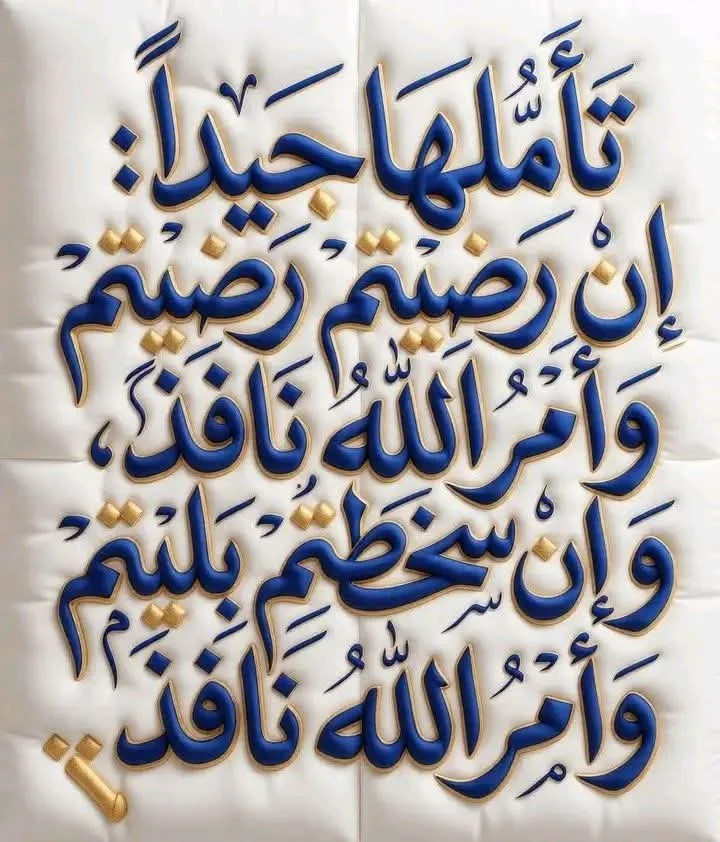 تَأَمَّلهَا جَيِّداً:
إنْ رَضيتمْ رَضيتمْ
وَأمْرُ اللّٰهُ نَافَذٌ،
وَإنْ سخَطتُمْ بَليتمْ
وَأمْرُ اللّٰهُ نَافَذَ